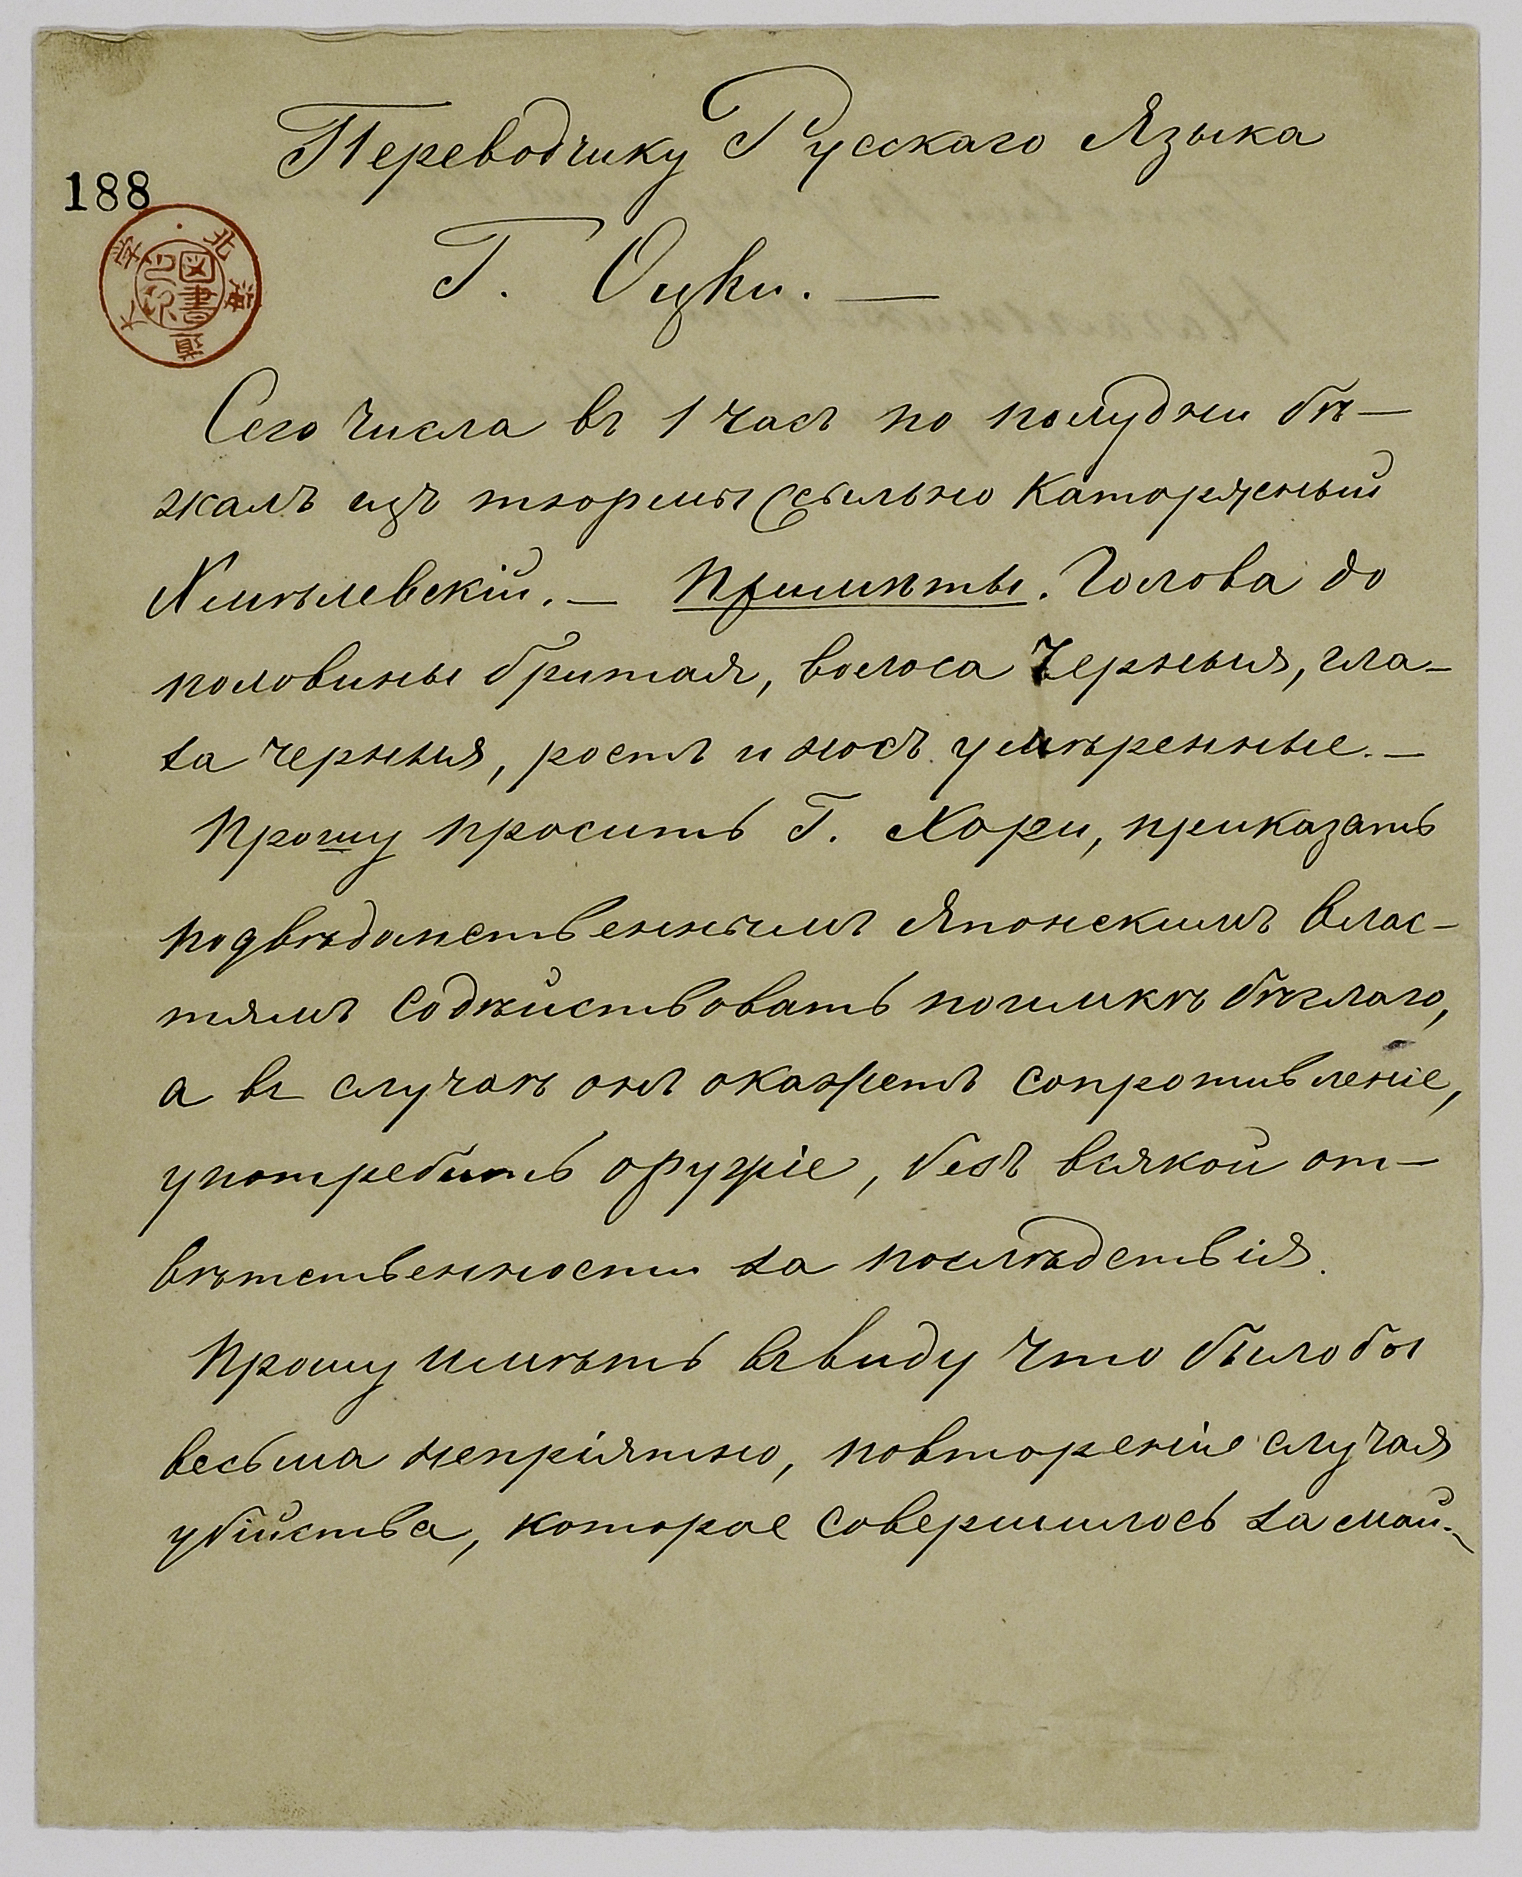 Переводчику Русскаго Языка
188
Г. Оцки. —
Сего числа въ 1 часъ по полудни бѣ-
жалъ изъ тюрмы Ссыльно Каторжный
Хмѣлевскій. — Примѣты. Голова до
половины бритая, волоса Черныя, гла-
за черныя, ростъ и носъ умѣренные. —
Прошу просить Г. Хори, приказать
подвѣдомственнымъ Японскимъ влас-
тямъ содѣйствовать поимкѣ бѣглаго,
а въ случаѣ онъ окажетъ сопротивленіе,
употребить оружіе, безъ всякой от-
вѣтственности за послѣдствія.
Прошу имѣть въ виду что было бы
весьма непріятно, повтореніе случая
убійства, которое совершилось за май-
北海道大学
図書